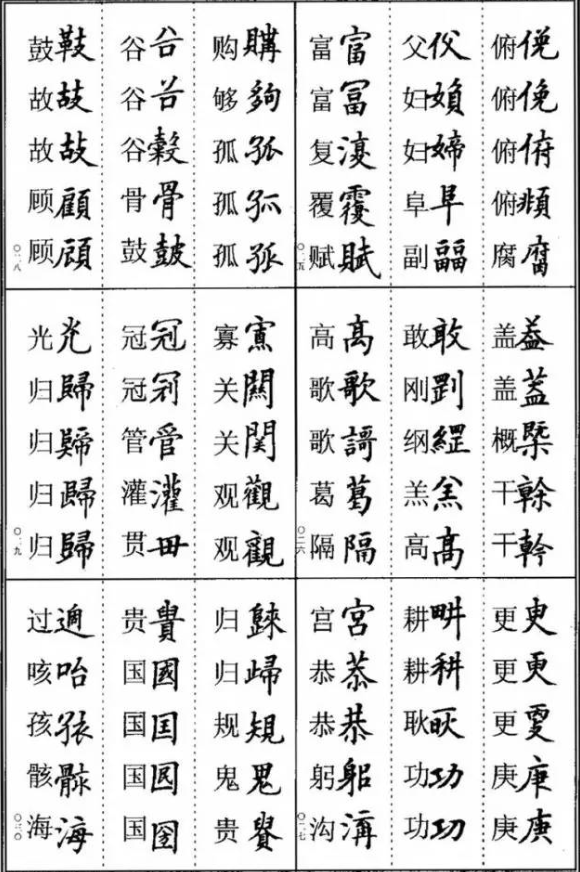 俯俛
俯俛
俯俯
俯頫
腐腐
父
妇媍
妇婦
阜阜
副
富富
富冨
复復
覆覆
赋賦
盖葢
盖蓋
概槩
干榦
干幹
敢敢
刚
纲綱
羔羔
高髙
高高
歌歌
歌謌
葛葛
隔隔
〇二六
更更
更更
更
庚庚
庚庚
耕畊
耕耕
耿耿
功功
功㓛
宫宮
恭恭
恭恭
躬躳
沟溝
〇二七
购購
够夠
孤孤
孤孤
孤孤
谷谷
谷谷
谷穀
骨骨
鼓皷
鼓
故故
故故
顾顧
顾頋
寡寡
关關
关関
观觀
观觀
冠冠
冠冠
管管
灌灌
贯毌
光光
归歸
归歸
归歸
归歸
归
归
规規
鬼鬼
贵貴
贵貴
国國
国囯
国
国圀
过過
咳咍
孩孩
骸骸
海海
〇三〇